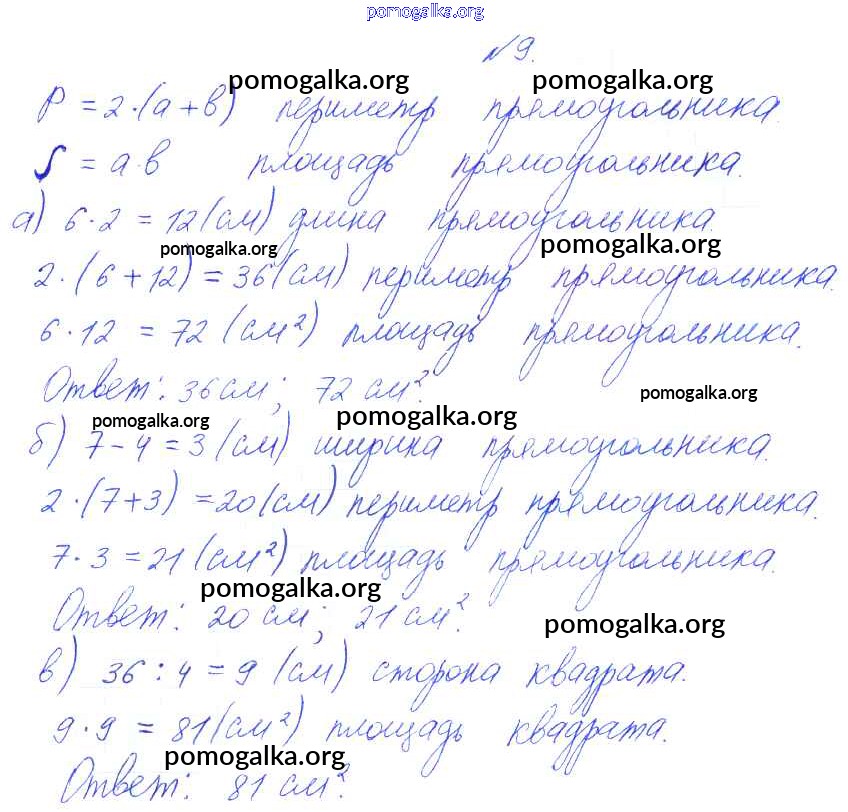 pomogalka.org
№9.
pomogalka.org pomogalka.org
P = 2·(a+b) периметр прямоугольника.
S = a·b площадь прямоугольника.
а) 6·2 = 12 (см) длина прямоугольника.
pomogalka.org pomogalka.org
2·(6+12) = 36 (см) периметр прямоугольника.
6·12 = 72 (см²) площадь прямоугольника.
Ответ: 36 см; 72 см².
pomogalka.org
pomogalka.org pomogalka.org
б) 7-4 = 3 (см) ширина прямоугольника.
2·(7+3) = 20 (см) периметр прямоугольника.
7·3 = 21 (см²) площадь прямоугольника.
pomogalka.org
Ответ: 20 см; 21 см².
pomogalka.org
в) 36:4 = 9 (см) сторона квадрата.
9·9 = 81 (см²) площадь квадрата.
pomogalka.org
Ответ: 81 см².